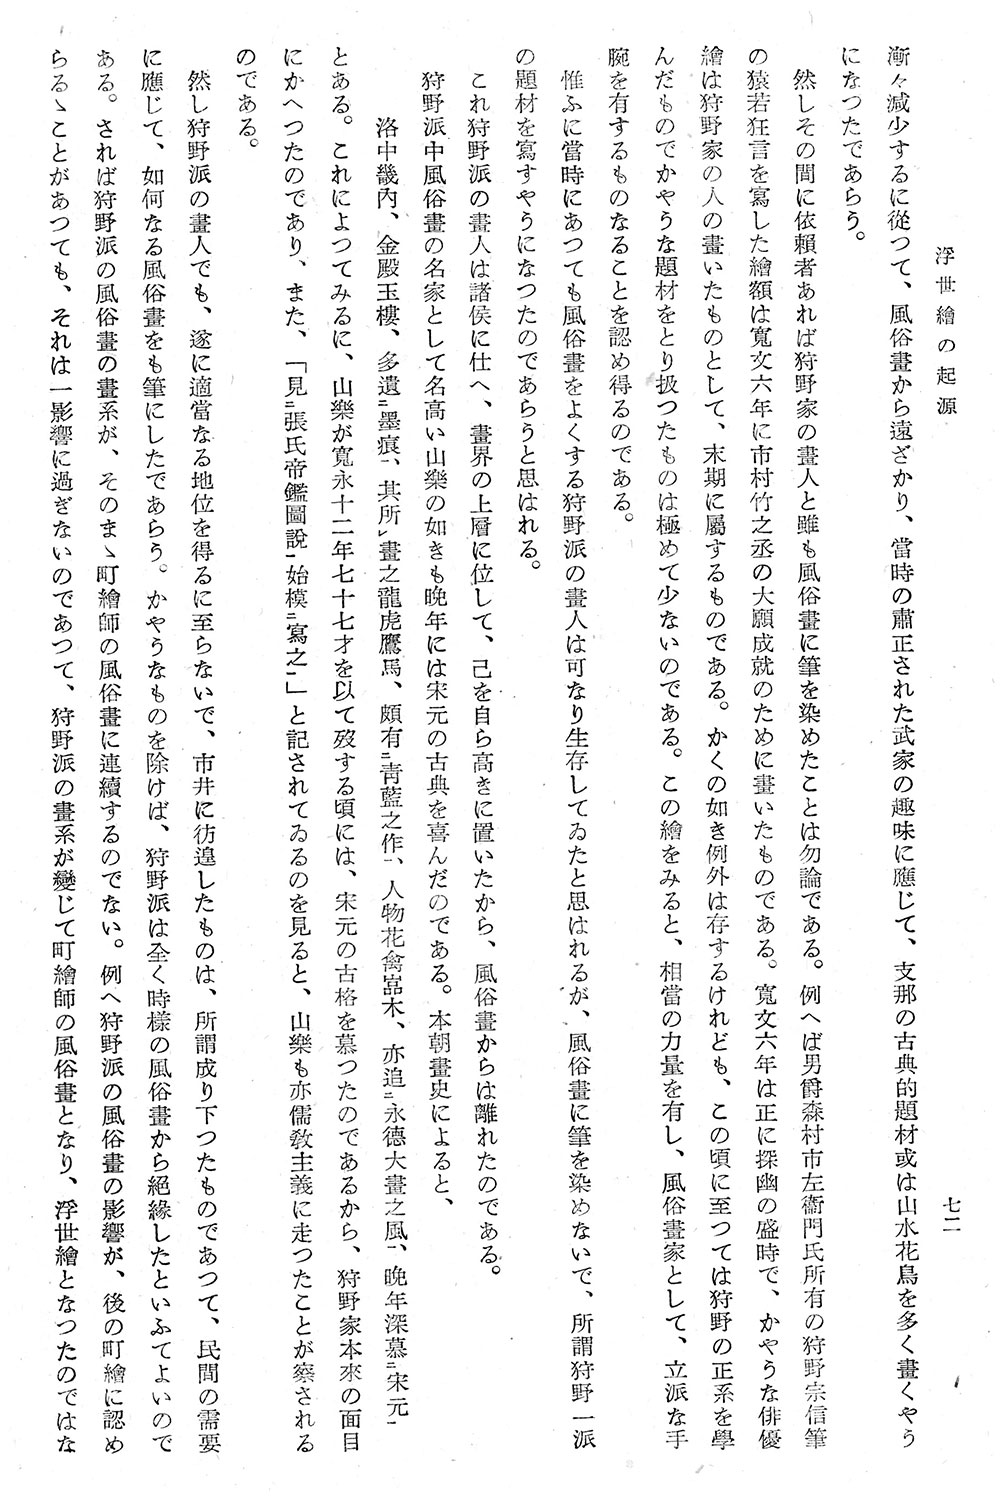 浮世繪の起源
七二
漸々減少するに從つて、風俗畫から遠ざかり、當時の肅正された武家の趣味に應じて、支那の古典的題材或は山水花鳥を多く畫くやう
になつたであらう。
然しその間に依頼者あれば狩野家の畫人と雖も風俗畫に筆を染めたことは勿論である。例へば男爵森村市左衞門氏所有の狩野宗信筆
の猿若狂言を寫した繪額は寬文六年に市村竹之丞の大願成就のために畫いたものである。寬文六年は正に探幽の盛時で、かやうな俳優
繪は狩野家の人の畫いたものとして、末期に屬するものである。かくの如き例外は存するけれども、この頃に至つては狩野の正系を學
んだものでかやうな題材をとり扱つたものは極めて少ないのである。この繪をみると、相當の力量を有し、風俗畫家として、立派な手
腕を有するものなることを認め得るのである。
惟ふに當時にあつても風俗畫をよくする狩野派の畫人は可なり生存してゐたと思はれるが、風俗畫に筆を染めないで、所謂狩野一派
の題材を寫すやうになつたのであらうと思はれる。
これ狩野派の畫人は諸侯に仕へ、畫界の上層に位して、己を自ら高きに置いたから、風俗畫からは離れたのである。
狩野派中風俗畫の名家として名高い山樂の如きも晩年には宋元の古典を喜んだのである。本朝畫史によると、
洛中畿內、金殿玉樓、多遺二墨痕一、其所レ畫之龍虎鷹馬、頗有二靑藍之作一、人物花禽嵓木、亦追二永德大畫之風一、晩年深慕二宋元一
とある。これによつてみるに、山樂が寬永十二年七十七才を以て歿する頃には、宋元の古格を慕つたのであるから、狩野家本來の面目
にかへつたのであり、また、「見二張氏帝鑑圖說一始模二寫之一」と記されてゐるのを見ると、山樂も亦儒敎主義に走つたことが察される
のである。
然し狩野派の畫人でも、遂に適當なる地位を得るに至らないで、市井に彷徨したものは、所謂成り下つたものであつて、民間の需要
に應じて、如何なる風俗畫をも筆にしたであらう。かやうなものを除けば、狩野派は全く時樣の風俗畫から絕緣したといふてよいので
ある。されば狩野派の風俗畫の畫系が、そのまゝ町繪師の風俗畫に連續するのでない。例へ狩野派の風俗畫の影響が、後の町繪に認め
らるゝことがあつても、それは一影響に過ぎないのであつて、狩野派の畫系が變じて町繪師の風俗畫となり、浮世繪となつたのではな